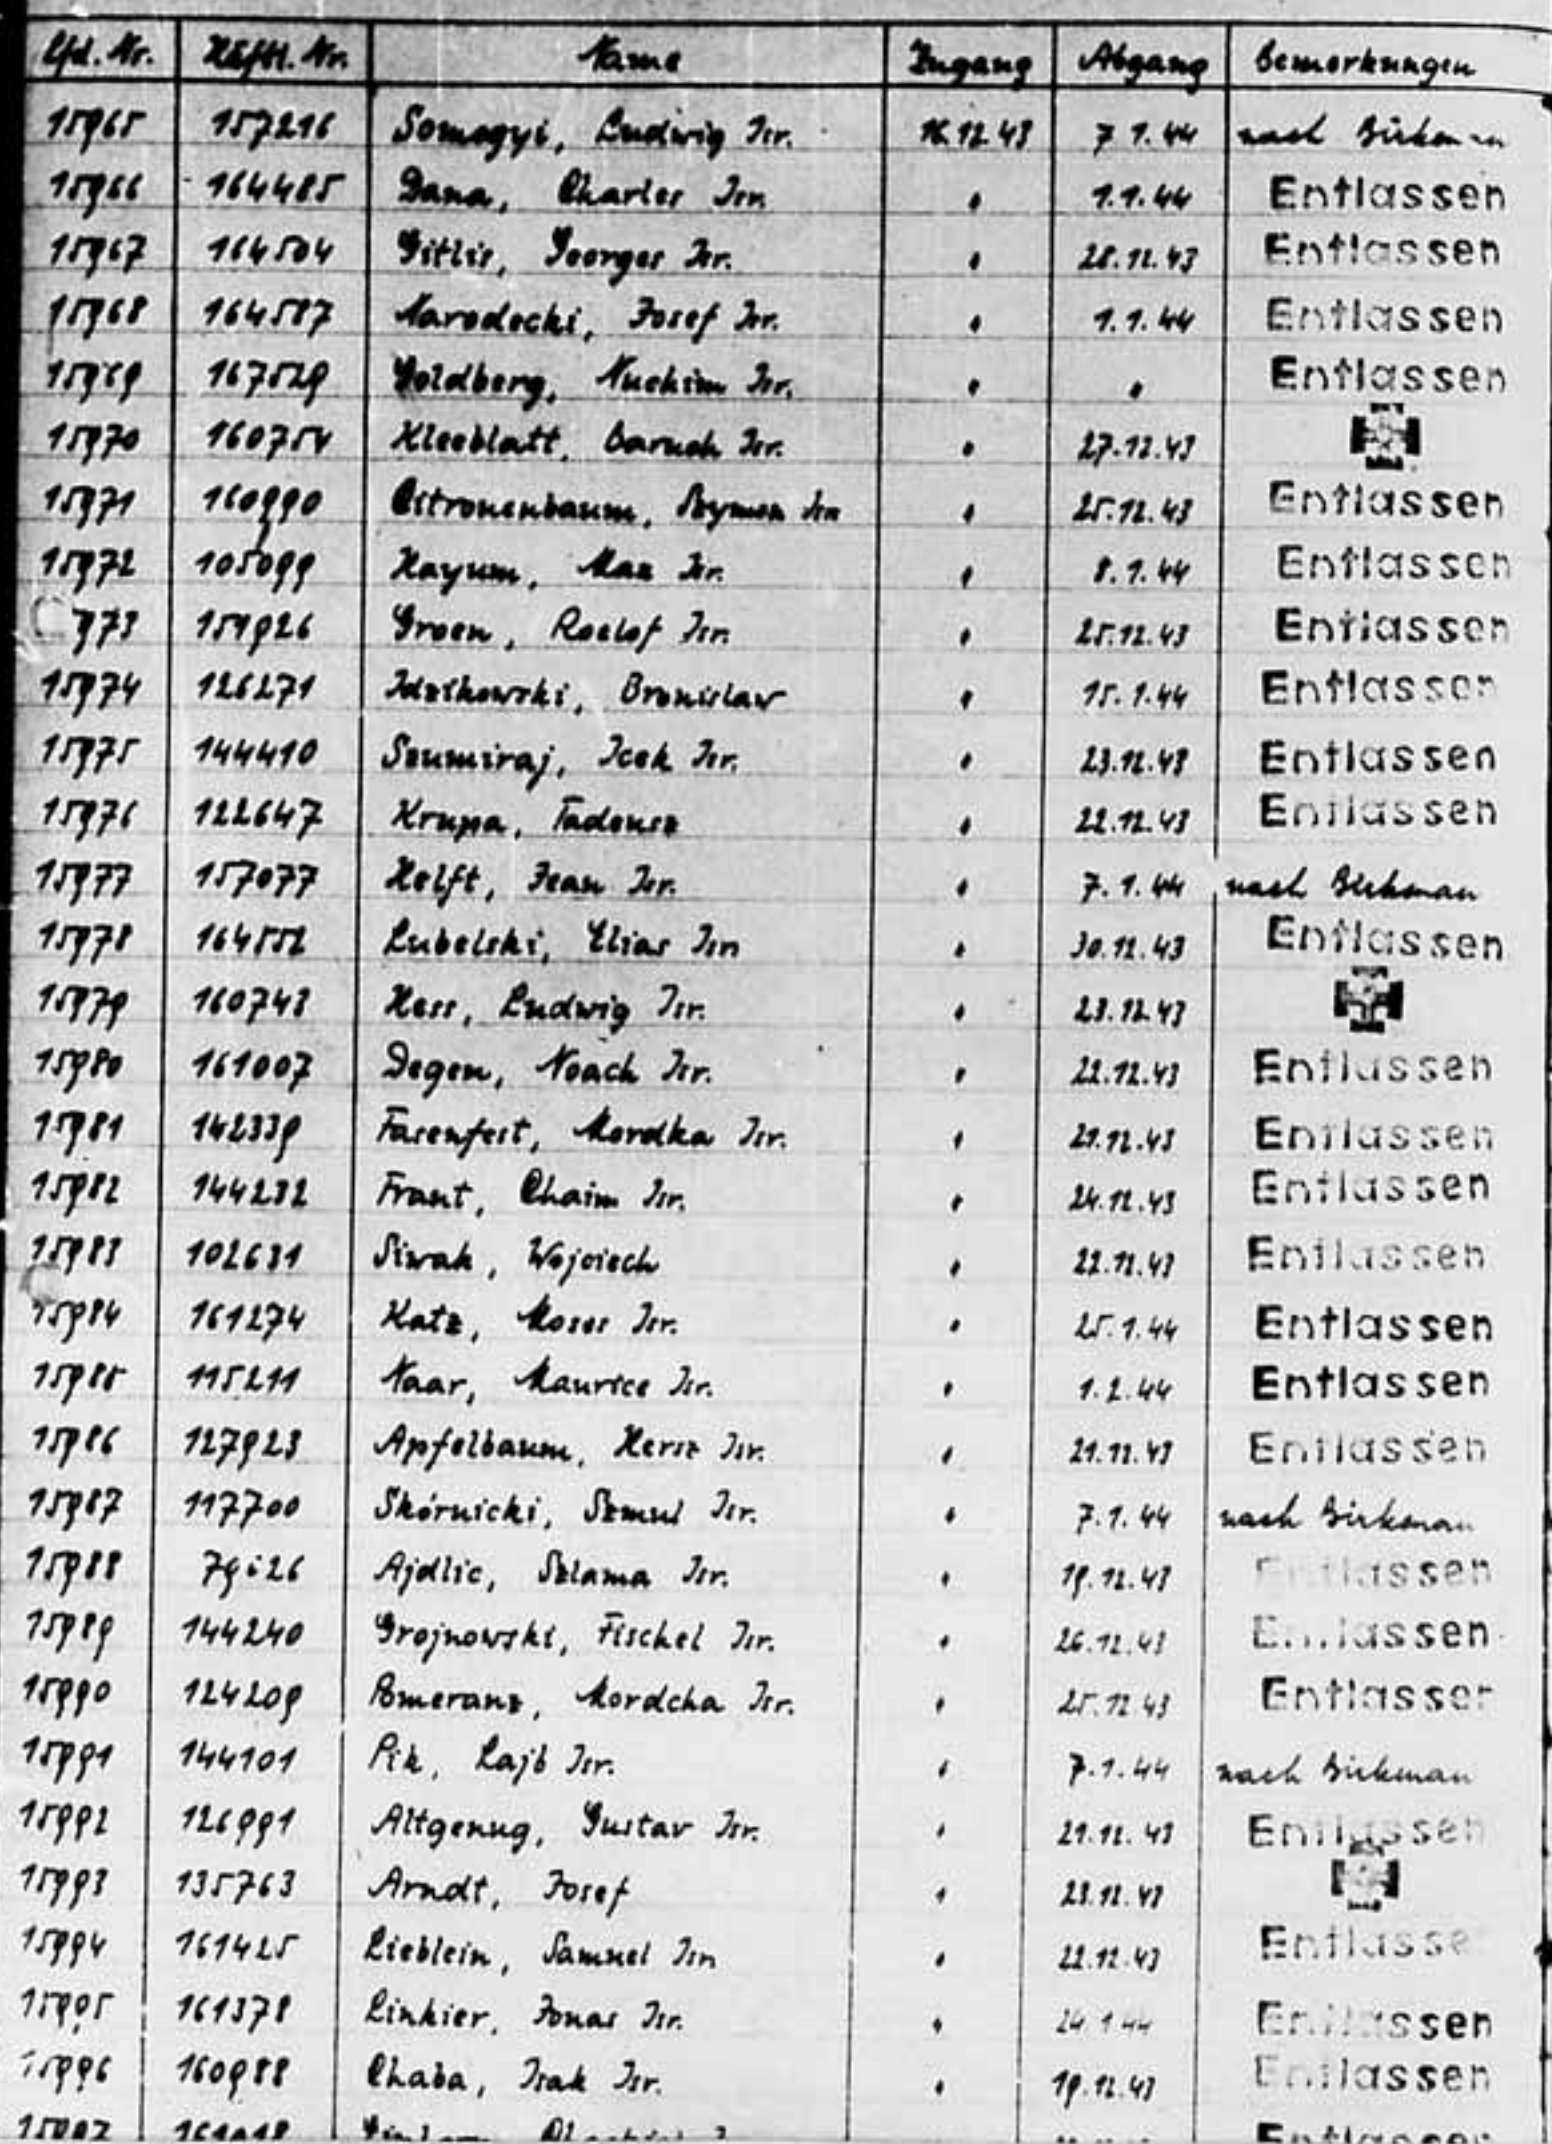 Lfd. Nr. Häftl. Nr. Name Zugang Abgang Bemerkungen
15965 157216 Somogyi, Ludwig Isr. 16.12.43 7.1.44 nach Birkenau
15966 164485 Dana, Charles Isr. " 1.1.44 Entlassen
15967 164504 Gitlis, Georges Isr. " 28.12.43 Entlassen
15968 164587 Narodecki, Josef Isr. " 1.1.44 Entlassen
15969 167529 Goldberg, Nuchim Isr. " " Entlassen
15970 160754 Kleeblatt, Baruch Isr. " 27.12.43
15971 160990 Citronenbaum, Szymon Isr. " 25.12.43 Entlassen
15972 105099 Kayum, Max Isr. " 8.1.44 Entlassen
973 151926 Groen, Roelof Isr. " 25.12.43 Entlassen
15974 126271 Idzikowski, Bronislaw " 15.1.44 Entlassen
15975 144410 Szumiraj, Icek Isr. " 23.12.43 Entlassen
15976 122647 Krupa, Tadeusz " 22.12.43 Entlassen
15977 157077 Helft, Jean Isr. " 7.1.44 nach Birkenau
15978 164552 Lubelski, Elias Isr. " 30.12.43 Entlassen
15979 160743 Hess, Ludwig Isr. " 23.12.43
15980 161007 Degen, Noach Isr. " 22.12.43 Entlassen
15981 142339 Fasenfest, Mordka Isr. " 21.12.43 Entlassen
15982 144232 Frant, Chaim Isr. " 24.12.43 Entlassen
15983 102631 Siwak, Wojciech " 22.12.43 Entlassen
15984 161274 Katz, Moses Isr. " 25.1.44 Entlassen
15985 115211 Naar, Maurice Isr. " 1.2.44 Entlassen
15986 127923 Apfelbaum, Hersz Isr. " 21.12.43 Entlassen
15987 117700 Skórnicki, Szmul Isr. " 7.1.44 nach Birkenau
15988 Ajdlic, Szlama Isr. " 19.12.43 Entlassen
15989 144240 Grojnowski, Fischel Isr. " 26.12.43 Entlassen
15990 124209 Pomeranz, Mordcha Isr. " 25.12.43 Entlassen
15991 144101 Pik, Lajb Isr. " 7.1.44 nach Birkenau
15992 126991 Altgenug, Gustav Isr. " 21.12.43 Entlassen
15993 135763 Arndt, Josef " 23.12.43
15994 161425 Lieblein, Samuel Isr. " 22.12.43 Entlassen
15995 161378 Linkier, Jonas Isr. " 24.1.44 Entlassen
15996 160988 Chaba, Isak Isr. " 19.12.43 Entlassen
15997 Entlassen